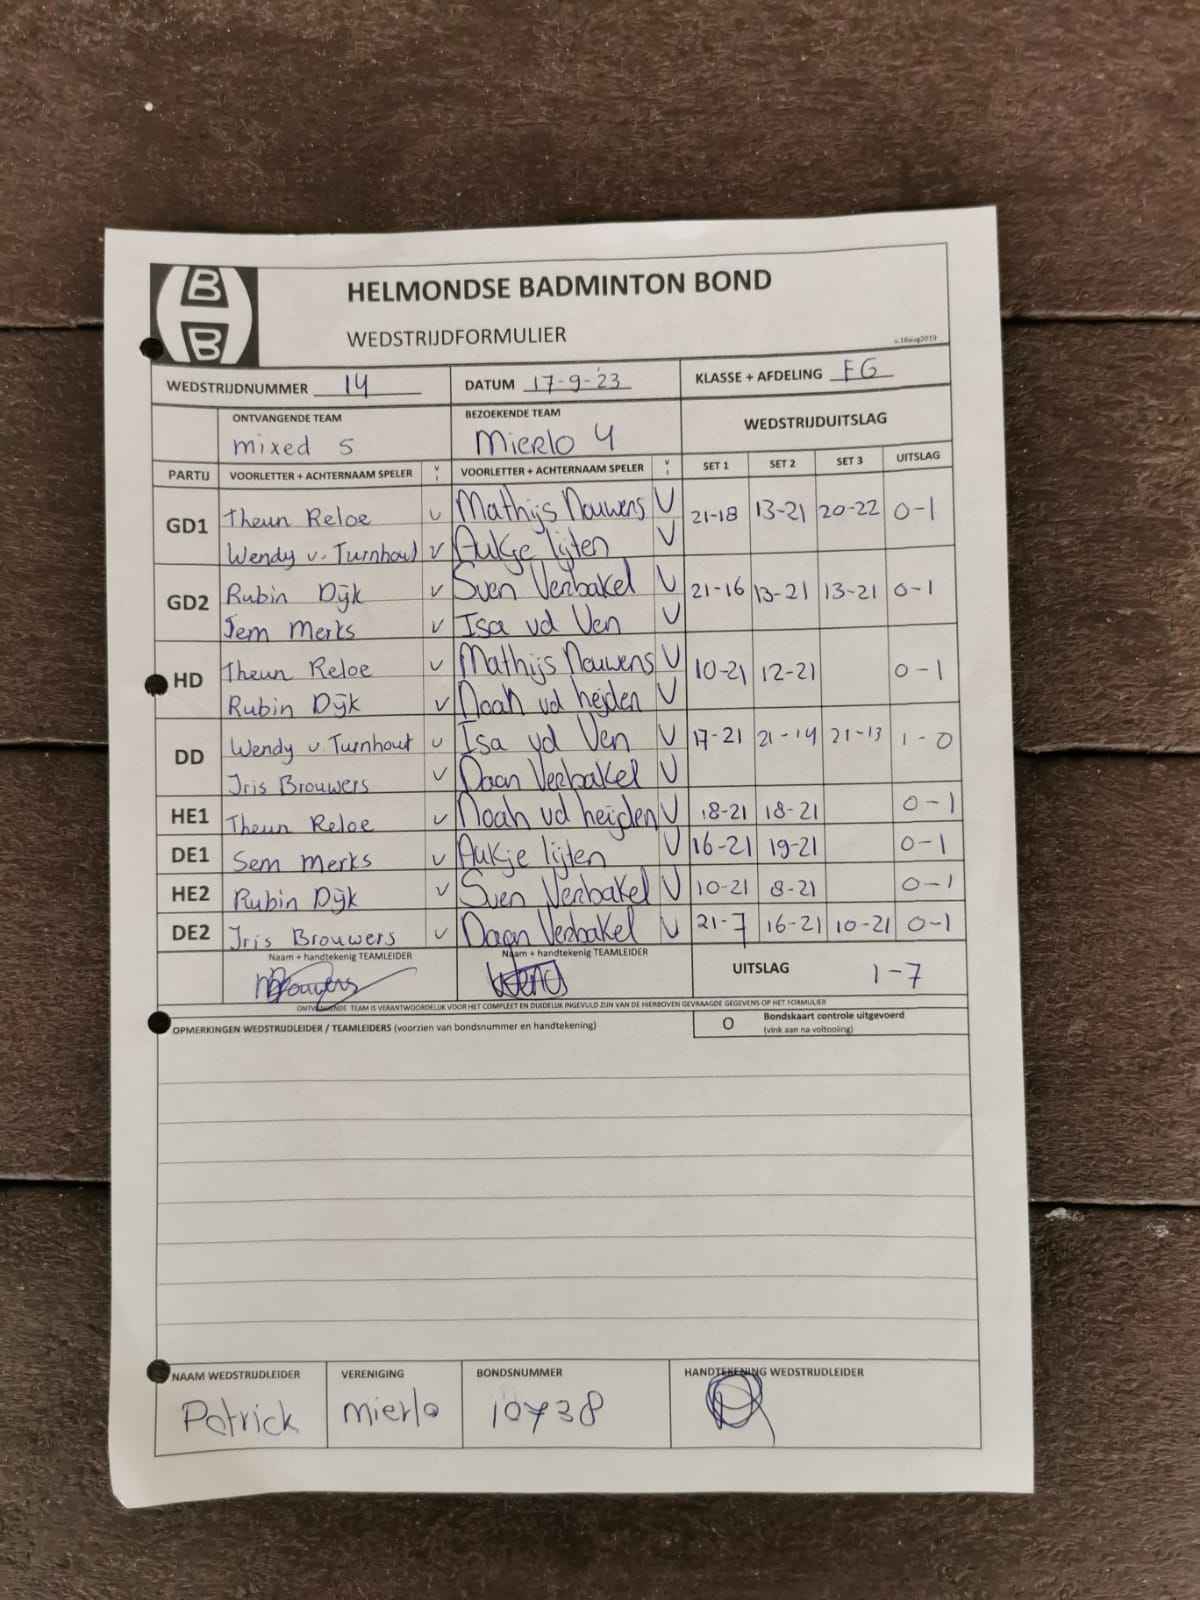 B
B
HELMONDSE BADMINTON BOND
WEDSTRIJDFORMULIER
v.16aug2019
WEDSTRIJDNUMMER 14 DATUM 17-9-'23 KLASSE + AFDELING FG
ONTVANGENDE TEAM BEZOEKENDE TEAM WEDSTRIJDUITSLAG
mixed 5 Mierlo 4
PARTIJ VOORLETTER + ACHTERNAAM SPELER V I VOORLETTER + ACHTERNAAM SPELER V I SET 1 SET 2 SET 3 UITSLAG
GD1 Theun Reloe v Mathijs Nouwens V 21-18 13-21 20-22 0-1
Wendy v. Turnhout v Aukje lijten V
GD2 Rubin Dijk v Sven Verbakel V 21-16 13-21 13-21 0-1
Jem Merks v Isa vd Ven V
HD Theun Reloe v Mathijs Nouwens V 10-21 12-21 0-1
Rubin Dijk v Noah vd heijden V
DD Wendy v. Turnhout v Isa vd Ven V 17-21 21-14 21-13 1-0
Iris Brouwers v Daan Verbakel V
HE1 Theun Reloe v Noah vd heijden V 18-21 18-21 0-1
DE1 Sem Merks v Aukje lijten V 16-21 19-21 0-1
HE2 Rubin Dijk v Sven Verbakel V 10-21 8-21 0-1
DE2 Iris Brouwers v Daan Verbakel V 21-7 16-21 10-21 0-1
Naam + handtekenig TEAMLEIDER Naam + handtekenig TEAMLEIDER UITSLAG 1-7
ONTVANGENDE TEAM IS VERANTWOORDELIJK VOOR HET COMPLEET EN DUIDELIJK INGEVULD ZIJN VAN DE HIERBOVEN GEVRAAGDE GEGEVENS OP HET FORMULIER
OPMERKINGEN WEDSTRIJDLEIDER / TEAMLEIDERS (voorzien van bondsnummer en handtekening) O Bondskaart controle uitgevoerd
(vink aan na voltooiing)
NAAM WEDSTRIJDLEIDER VERENIGING BONDSNUMMER HANDTEKENING WEDSTRIJDLEIDER
Patrick mierlo 10738